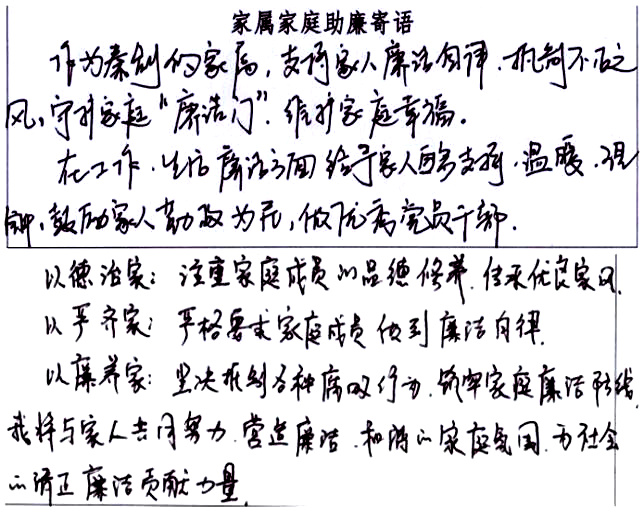 家属家庭助廉寄语
作为秦创的家属，支持家人廉洁自律、抵制不正之
风，守护家庭“廉洁门”，维护家庭幸福。
在工作、生活廉洁方面给予家人更多支持、温暖、提
醒，鼓励家人勤政为民，做优秀党员干部。
以德治家：注重家庭成员的品德修养，传承优良家风。
以严齐家：严格要求家庭成员做到廉洁自律。
以廉养家：坚决抵制各种腐败行为，筑牢家庭廉洁防线，
我将与家人共同努力，营造廉洁、和谐的家庭氛围，为社会
的清正廉洁贡献力量。